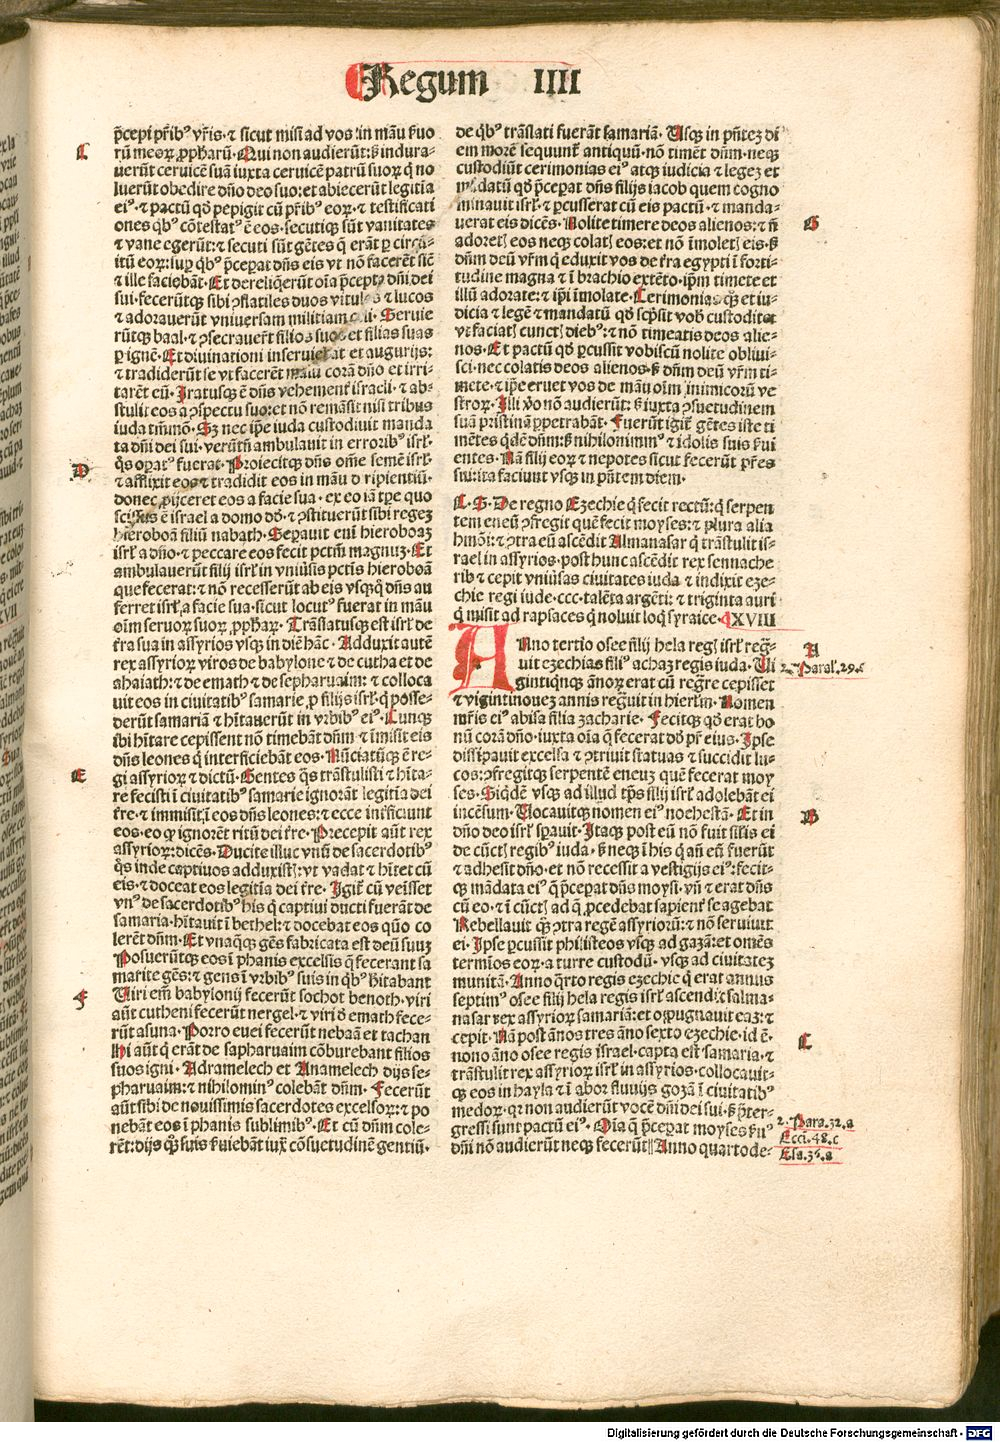 Regum IIII
p̄cepi pr̄ib⁹ vr̄is·⁊ sicut misi ad vos in māu ẜuo
C
rū meoꝝ ꝓphaꝝ·Qui non audierūt:ẜ indura-
uerūt ceruicē suā iuxta ceruicē patrū suoꝝ q̇ no
luerūt obedire dn̄o deo suo:et abiecerūt legitīa
ei⁹·⁊ pactū qd̄ pepigit cū pr̄ib⁹ eoꝝ·⁊ testificati
ones qb⁹ cōtestat⁹ ē eos·secutiqꝫ sūt vanitates
⁊ vane egerūt:⁊ secuti sūt gētes q̄ erāt ꝑ circū-
itū eoꝝ:suꝑ qb⁹ p̄ceꝑat dn̄s eis vt nō facerēt sic̄
⁊ ille faciebāt·Et dereliq̄rūt oīa p̄cepta dn̄i dei
sui·fecerūtqꝫ sibi ꝯflatiles duos vitulos ⁊ lucos
⁊ adorauerūt vniuersam militiam celi·Seruie
rūtqꝫ baal·⁊ ꝯsecrauer̄t filios suos et filias suas
ꝑ ignē·Et diuinationi inseruiebāt et augurijs:
⁊ tradiderūt se vt facerēt malū corā dn̄o et irri-
tarēt eū·Iratusqꝫ ē dn̄s vehement̄ israeli·⁊ ab-
stulit eos a ꝯspectu suo:et nō remāsit nisi tribus
iuda tm̄mō·Sꝫ nec ip̄e iuda custodiuit manda
ta dn̄i dei sui·verūtn̄ ambulauit in errorib⁹ isrł·
D
q̄s oꝑat⁹ fuerat·Proiecitqꝫ dn̄s om̄e semē isrł·
⁊ afflixit eos ⁊ tradidit eos in māu diripientiū·
donec ꝓijceret eos a facie sua·ex eo iā tꝑe quo
scissus ē israel a domo dd̄·⁊ ꝯstituerūt sibi regeꝫ
hieroboā filiū nabath·Seꝑauit eni hieroboaꝫ
isrł a dn̄o·⁊ peccare eos fecit pctm̄ magnuꝫ·Et
ambulauerūt filij isrł in vniūsis pctīs hieroboā
que fecerat:⁊ nō recesserūt ab eis vsqꝫq̇ dn̄s au
ferret isrł a facie sua·sicut locut⁹ fuerat in māu
oīm seruoꝝ suoꝝ ꝓphaꝝ·Trāslatusqꝫ est isrł de
t̄ra sua in assyrios vsqꝫ in diē hāc·Adduxit autē
rex assyrioꝝ viros de babylone ⁊ de cutha et de
ahaiath:⁊ de emath ⁊ de sepharuaim:⁊ colloca
uit eos in ciuitatib⁹ samarie ꝓ filijs isrł·q̇ posse-
derūt samariā ⁊ hītauerūt in vrbib⁹ ei⁹·Cunqꝫ
ibi hītare cepissent nō timebāt dn̄m ⁊ īmisit eis
dn̄s leones q̇ interficiebāt eos·Nūciatūqꝫ ē re-
E
gi assyrioꝝ ⁊ dictū·Gentes q̄s trāstulisti ⁊ hīta-
re fecisti ī ciuitatib⁹ samarie ignorāt legitīa dei
t̄re·⁊ immisit ī eos dn̄s leones:⁊ ecce inficiunt
eos·eo ꝙ ignorēt ritū dei t̄re·Precepit aūt rex
assyrioꝝ:dicēs·Ducite illuc vnū de sacerdotib⁹
q̄s inde captiuos adduxistꝭ:vt vadat ⁊ hītet cū
eis·⁊ doceat eos legitīa dei t̄re·Igiꝉ cū veisset
vn⁹ de sacerdotib⁹ his q̇ captiui ducti fuerāt de
samaria·hītauit ī bethel:⁊ docebat eos quō co
lerēt dn̄m·Et vnaq̄qꝫ gēs fabricata est deū suuꝫ
Posuerūtqꝫ eos ī phanis excelsis q̄ fecerant sa
marite gēs:⁊ gens ī vrbib⁹ suis in qb⁹ h̄itabant
F
Uiri em̄ babylonij fecerūt sochot benoth·viri
aūt cutheni fecerūt nergel·⁊ viri d̄ emath fece-
rūt asuna·Porro euei fecerūt nebaā et tachan
Hi aūt q̇ erāt de sapharuaim cōburebant filios
suos igni·Adramelech et Anamelech dijs se-
pharuaim:⁊ nihilomin⁹ colebāt dn̄m·Fecerūt
aūt sibi de nouissimis sacerdotes excelsoꝝ:⁊ po
nebāt eos ī phanis sublimib⁹·Et cū dn̄m cole-
rēt:dijs qꝫ suis ẜuiebāt iux̄ cōsuetudinē gentiū·
de qb⁹ trāslati fuerāt samariā·Usqꝫ in pn̄teꝫ di
em morē sequunt̄ antiquū·nō timēt dn̄m·neqꝫ
custodiūt cerimonias ei⁹ atqꝫ iudicia ⁊ legeꝫ et
mādatū qd̄ p̄ceꝑat dn̄s filijs iacob quem cogno
minauit isrł·⁊ ꝑcusserat cū eis pactū·⁊ manda-
G
uerat eis dicēs·Nolite timere deos alienos:⁊ ñ
adoretꝭ eos neqꝫ colatꝭ eos:et nō īmoletꝭ eis·ẜ
dn̄m deū vr̄m q̇ eduxit vos de t̄ra egypti ī forti-
tudine magna ⁊ ī brachio extēto·ip̄m timete et
illū adorate:⁊ ip̄i īmolate·Cerimonias qꝫ et iu-
dicia ⁊ legē ⁊ mandatū qd̄ scp̄sit vob̄ custodite
vt faciatꝭ cunctꝭ dieb⁹:⁊ nō timeatis deos alie-
nos·Et pactū qd̄ ꝑcussit vobiscū nolite obliui-
sci·nec colatis deos alienos·ẜ dn̄m deū vr̄m ti-
mete·⁊ ip̄e eruet vos de māu oīm inimicorū ve
stroꝝ·Illi ꝟo nō audierūt:ẜ iuxta ꝯsuetudinem
suā pristinā ꝑpetrabāt·Fuerūt igiꝉ gētes iste ti
mētes qdē dn̄m:ẜ nihilominm⁹ ⁊ idolis suis ẜui
entes·Nā filij eoꝝ ⁊ nepotes sicut fecerūt pr̄es
sui:ita faciunt vsqꝫ in pn̄tem diem·
C·S·De regno Ezechie q̇ fecit rectū:q̇ serpen
tem eneū ꝯfregit quē fecit moyses:⁊ plura alia
hmōi:⁊ ꝯtra eū ascēdit Almanasar q̇ trāstulit is-
rael in assyrios·post hunc ascēdit rex sennache
rib ⁊ cepit vniūsas ciuitates iuda ⁊ indixit eze-
chie regi iude·ccc·talēta argēti:⁊ triginta auri
q̇ misit ad rapsaces q̇ noluit loq̇ syraice·XVIII
A
ANno tertio osee filij hela regꝭ isrł reḡ-
uit ezechias fili⁹ achaꝫ regis iuda·Ui
2·Paral·29·c
gintiqnqꝫ ānoꝝ erat cū reḡre cepisset
⁊ vigintinoueꝫ annis reḡuit in hierłm·Nomen
mr̄is ei⁹ abisa filia zacharie·Fecitqꝫ qd̄ erat bo
nū corā dn̄o·iuxta oīa q̄ fecerat dd̄ pr̄ eius·Ipse
dissipauit excelsa ⁊ ꝯtriuit statuas ⁊ succidit lu-
cos:ꝯfregitqꝫ serpentē eneuꝫ quē fecerat moy
ses·Siqdē vsqꝫ ad illud tp̄s filij isrł adolebāt ei
B
incēsum·Uocauitqꝫ nomen ei⁹ noehestā·Et in
dn̄o deo isrł sꝑauit·Itaqꝫ post eū nō fuit silis ei
de cūctꝭ regib⁹ iuda·ẜ neqꝫ ī his q̇ an̄ eū fuerūt
⁊ adhesit dn̄o·et nō recessit a vestigijs ei⁹:fecit-
qꝫ mādata ei⁹ q̄ p̄ceꝑat dn̄s moysi·vn̄ ⁊ erat dn̄s
cū eo·⁊ ī cūctꝭ ad q̄ ꝓcedebat sapient̄ se agebat
Rebellauit qꝫ ꝯtra regē assyrioꝝ:⁊ nō seruiuit
ei·Ipse ꝑcussit philisteos vsqꝫ ad gazā:et omēs
termīos eoꝝ·a turre custodū·vsqꝫ ad ciuitateꝫ
munitā·Anno q̄rto regis ezechie q̇ erat annus
septim⁹ osee filij hela regis isrł ascendit salma-
nasar rex assyrioꝝ samariā:et oꝓpugnauit eaꝫ:⁊
C
cepit·Nā post ānos tres āno sexto ezechie·id ē·
nono āno osee regis israel·capta est samaria·⁊
trāstulit rex assyrioꝝ isrł in assyrios·collocauit-
qꝫ eos in hayla ⁊ ī abor fluuijs gozā ī ciuitatib⁹
medoꝝ·qꝛ non audierūt vocē dn̄i dei sui·ẜ p̄ter-
2·Para·32·a
gressi sunt pactū ei⁹·Oīa q̄ p̄ceꝑat moyses ẜu⁹
Ecci·48·c
dn̄i nō audierūt neqꝫ fecerūt‖Anno quartode-
Esa·36·a
Digitalisierung gefördert durch die Deutsche Forschungsgemeinschaft - DFG